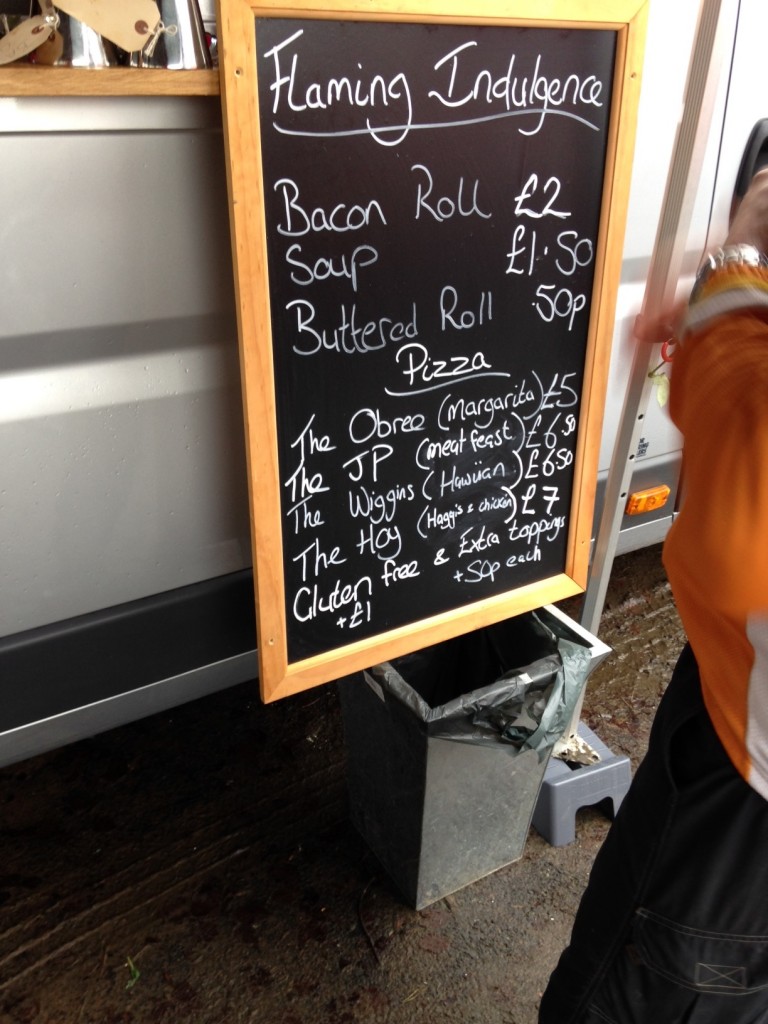 Flaming Indulgence
Bacon Roll £2
Soup £1.50
Buttered Roll .50p
Pizza
The Obree (margarita) £5
The JP (meat feast) £6.50
The Wiggins (Hawiian) £6.50
The Hoy (Haggis & chicken) £7
Gluten free & Extra toppings
+£1 +50p each